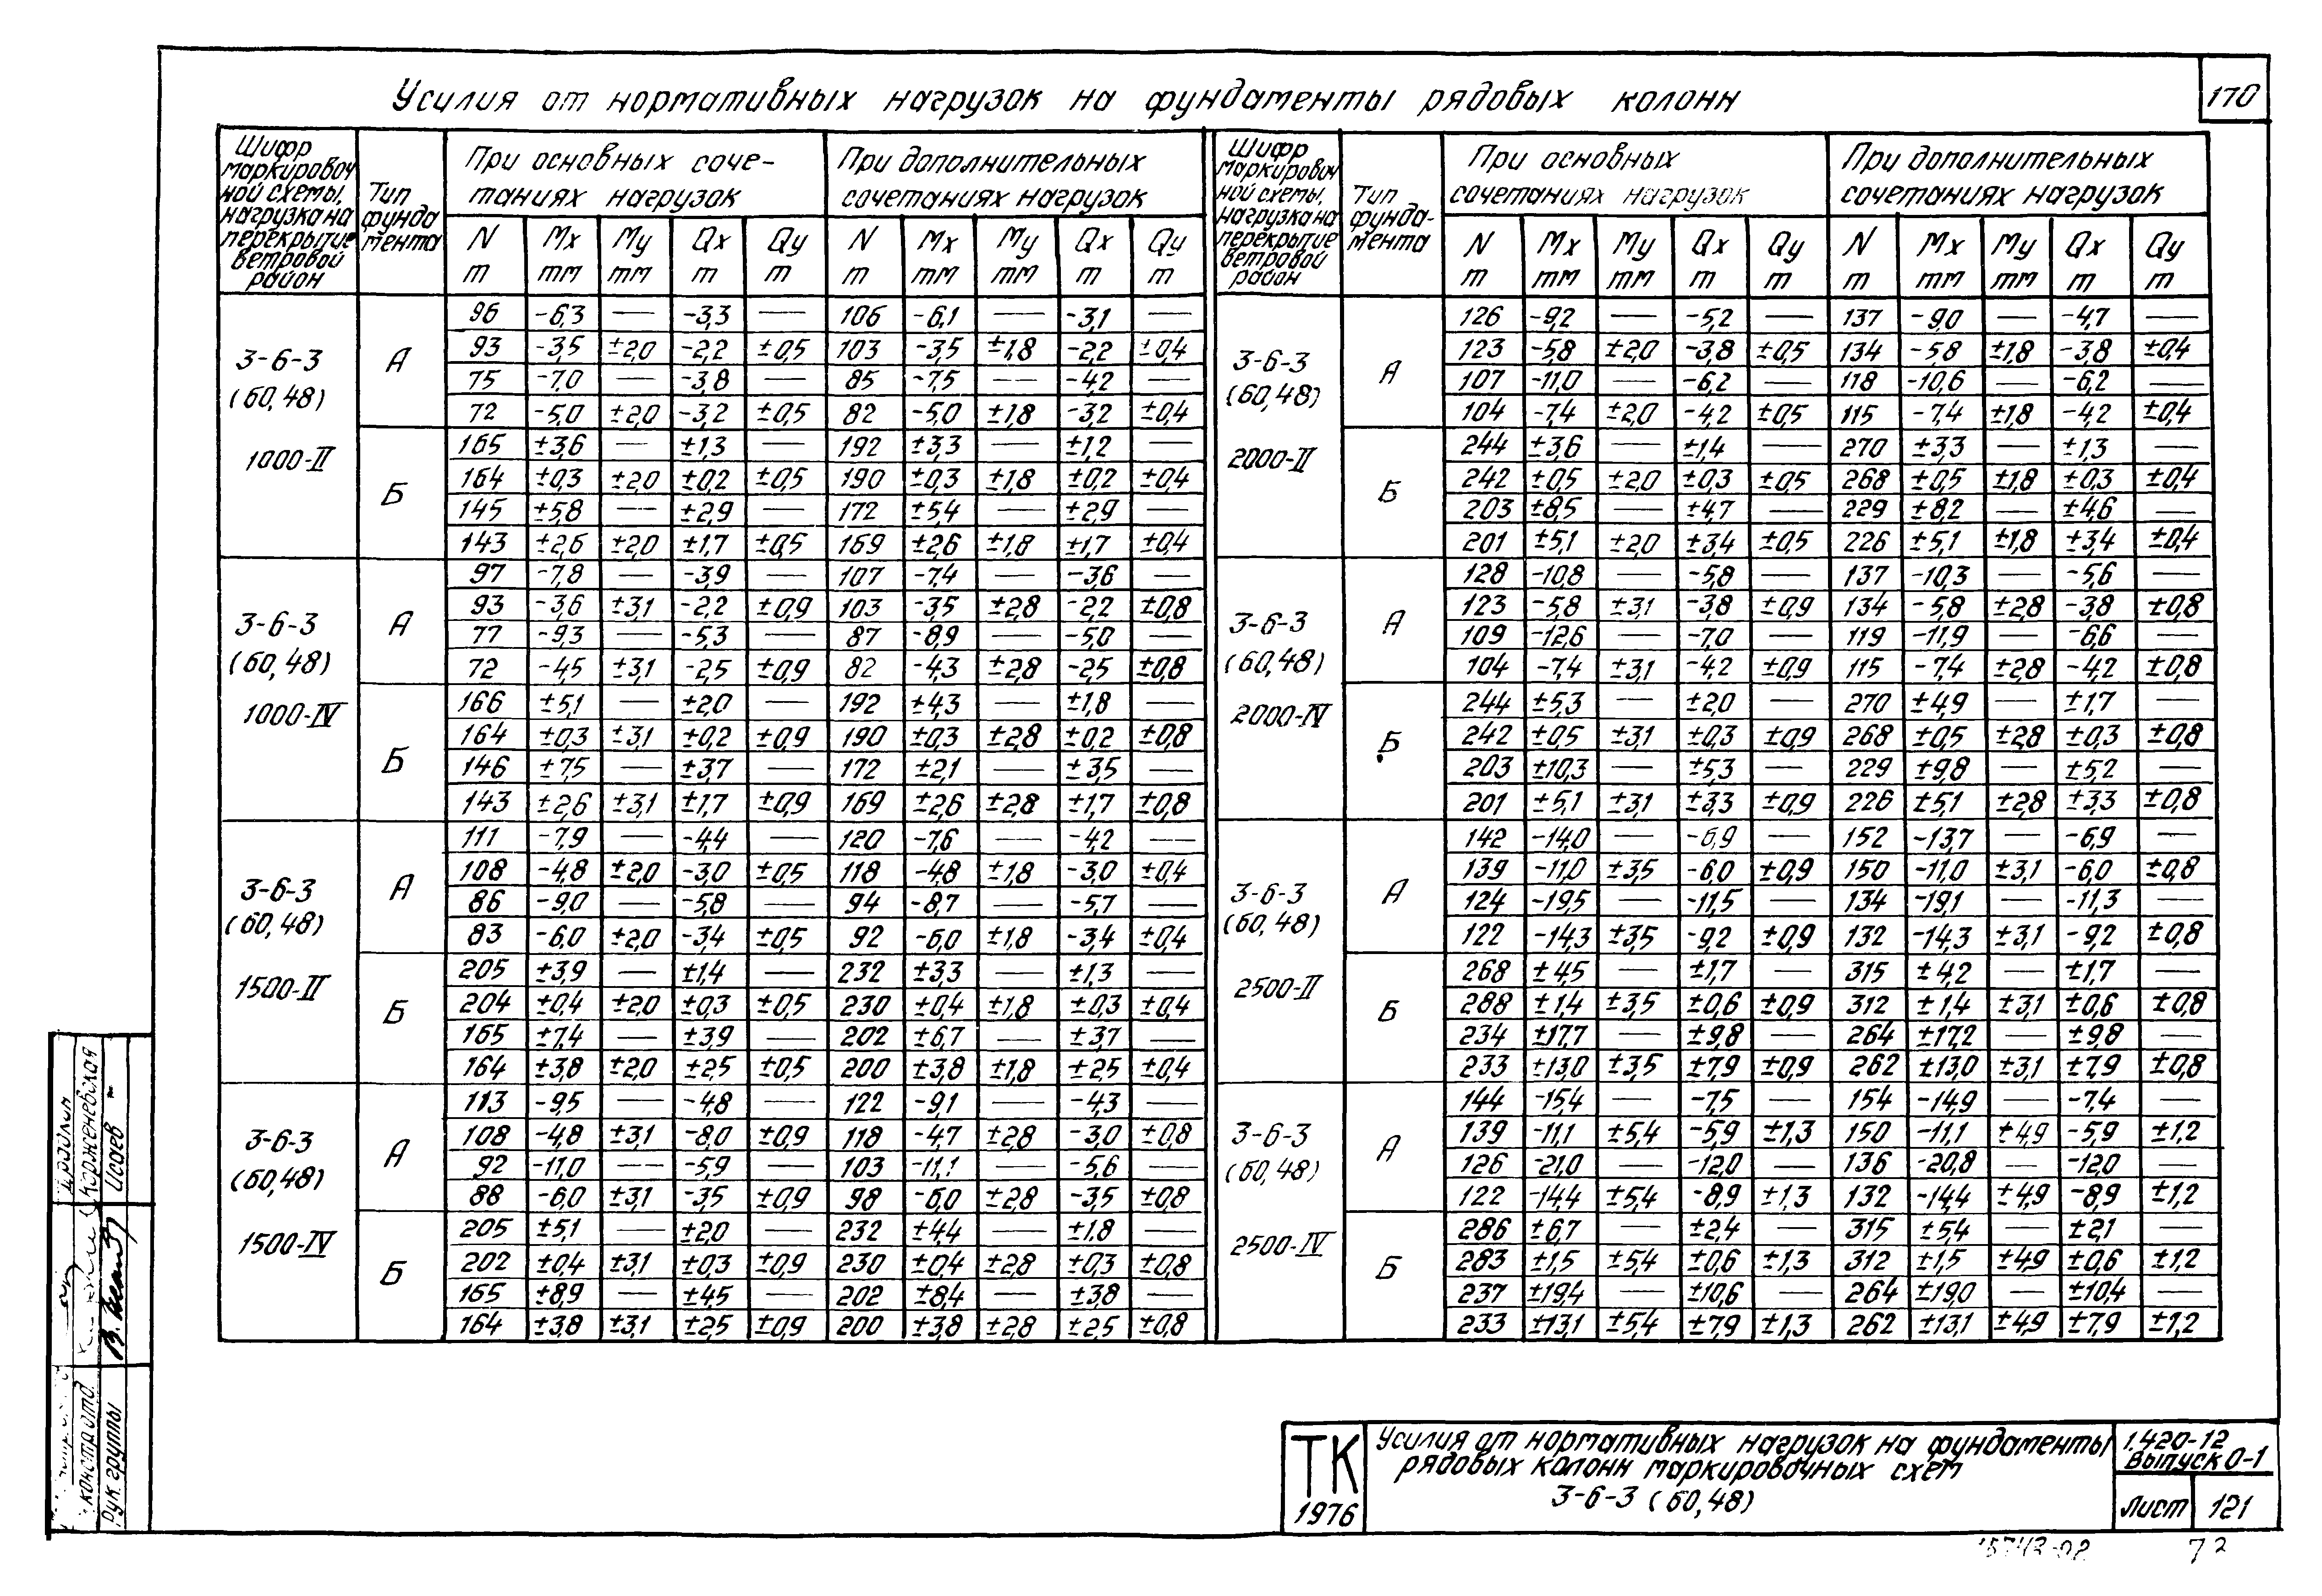 170
Усилия от нормативных нагрузок на фундаменты рядовых колонн
Шифр маркировоч ной схемы, нагрузка на перекрытие ветровой район | Тип фунда мента | При основных соче- таниях нагрузок | При дополнительных сочетаниях нагрузок
N т | Mx тм | My тм | Qx т | Qy т | N т | Mx тм | My тм | Qx т | Qy т
3-6-3 (60,48) 1000-II
А
96 -6,3 — -3,3 — 106 -6,1 — -3,1 —
93 -3,5 ±2,0 -2,2 ±0,5 103 -3,5 ±1,8 -2,2 ±0,4
75 -7,0 — -3,8 — 85 -7,5 — -4,2 —
72 -5,0 ±2,0 -3,2 ±0,5 82 -5,0 ±1,8 -3,2 ±0,4
Б
165 ±3,6 — ±1,3 — 192 ±3,3 — ±1,2 —
164 ±0,3 ±2,0 ±0,2 ±0,5 190 ±0,3 ±1,8 ±0,2 ±0,4
145 ±5,8 — ±2,9 — 172 ±5,4 — ±2,9 —
143 ±2,6 ±2,0 ±1,7 ±0,5 169 ±2,6 ±1,8 ±1,7 ±0,4
3-6-3 (60,48) 1000-IV
А
97 -7,8 — -3,9 — 107 -7,4 — -3,6 —
93 -3,6 ±3,1 -2,2 ±0,9 103 -3,5 ±2,8 -2,2 ±0,8
77 -9,3 — -5,3 — 87 -8,9 — -5,0 —
72 -4,5 ±3,1 -2,5 ±0,9 82 -4,3 ±2,8 -2,5 ±0,8
Б
166 ±5,1 — ±2,0 — 192 ±4,3 — ±1,8 —
164 ±0,3 ±3,1 ±0,2 ±0,9 190 ±0,3 ±2,8 ±0,2 ±0,8
146 ±7,5 — ±3,7 — 172 ±2,1 — ±3,5 —
143 ±2,6 ±3,1 ±1,7 ±0,9 169 ±2,6 ±2,8 ±1,7 ±0,8
3-6-3 (60,48) 1500-II
А
111 -7,9 — -4,4 — 120 -7,6 — -4,2 —
108 -4,8 ±2,0 -3,0 ±0,5 118 -4,8 ±1,8 -3,0 ±0,4
86 -9,0 — -5,8 — 94 -8,7 — -5,7 —
83 -6,0 ±2,0 -3,4 ±0,5 92 -6,0 ±1,8 -3,4 ±0,4
Б
205 ±3,9 — ±1,4 — 232 ±3,3 — ±1,3 —
204 ±0,4 ±2,0 ±0,3 ±0,5 230 ±0,4 ±1,8 ±0,3 ±0,4
165 ±7,4 — ±3,9 — 202 ±6,7 — ±3,7 —
164 ±3,8 ±2,0 ±2,5 ±0,5 200 ±3,8 ±1,8 ±2,5 ±0,4
3-6-3 (60,48) 1500-IV
А
113 -9,5 — -4,8 — 122 -9,1 — -4,3 —
108 -4,8 ±3,1 -8,0 ±0,9 118 -4,7 ±2,8 -3,0 ±0,8
92 -11,0 — -5,9 — 103 -11,1 — -5,6 —
88 -6,0 ±3,1 -3,5 ±0,9 98 -6,0 ±2,8 -3,5 ±0,8
Б
205 ±5,1 — ±2,0 — 232 ±4,4 — ±1,8 —
202 ±0,4 ±3,1 ±0,3 ±0,9 230 ±0,4 ±2,8 ±0,3 ±0,8
165 ±8,9 — ±4,5 — 202 ±8,4 — ±3,8 —
164 ±3,8 ±3,1 ±2,5 ±0,9 200 ±3,8 ±2,8 ±2,5 ±0,8
Шифр маркировоч ной схемы, нагрузка на перекрытие ветровой район | Тип фунда- мента | При основных сочетаниях нагрузок | При дополнительных сочетаниях нагрузок
N т | Mx тм | My тм | Qx т | Qy т | N т | Mx тм | My тм | Qx т | Qy т
3-6-3 (60,48) 2000-II
А
126 -9,2 — -5,2 — 137 -9,0 — -4,7 —
123 -5,8 ±2,0 -3,8 ±0,5 134 -5,8 ±1,8 -3,8 ±0,4
107 -11,0 — -6,2 — 118 -10,6 — -6,2 —
104 -7,4 ±2,0 -4,2 ±0,5 115 -7,4 ±1,8 -4,2 ±0,4
Б
244 ±3,6 — ±1,4 — 270 ±3,3 — ±1,3 —
242 ±0,5 ±2,0 ±0,3 ±0,5 268 ±0,5 ±1,8 ±0,3 ±0,4
203 ±8,5 — ±4,7 — 229 ±8,2 — ±4,6 —
201 ±5,1 ±2,0 ±3,4 ±0,5 226 ±5,1 ±1,8 ±3,4 ±0,4
3-6-3 (60,48) 2000-IV
А
128 -10,8 — -5,8 — 137 -10,3 — -5,6 —
123 -5,8 ±3,1 -3,8 ±0,9 134 -5,8 ±2,8 -3,8 ±0,8
109 -12,6 — -7,0 — 119 -11,9 — -6,6 —
104 -7,4 ±3,1 -4,2 ±0,9 115 -7,4 ±2,8 -4,2 ±0,8
Б
244 ±5,3 — ±2,0 — 270 ±4,9 — ±1,7 —
242 ±0,5 ±3,1 ±0,3 ±0,9 268 ±0,5 ±2,8 ±0,3 ±0,8
203 ±10,3 — ±5,3 — 229 ±9,8 — ±5,2 —
201 ±5,1 ±3,1 ±3,3 ±0,9 226 ±5,1 ±2,8 ±3,3 ±0,8
3-6-3 (60,48) 2500-II
А
142 -14,0 — -6,9 — 152 -13,7 — -6,9 —
139 -11,0 ±3,5 -6,0 ±0,9 150 -11,0 ±3,1 -6,0 ±0,8
124 -19,5 — -11,5 — 134 -19,1 — -11,3 —
122 -14,3 ±3,5 -9,2 ±0,9 132 -14,3 ±3,1 -9,2 ±0,8
Б
268 ±4,5 — ±1,7 — 315 ±4,2 — ±1,7 —
288 ±1,4 ±3,5 ±0,6 ±0,9 312 ±1,4 ±3,1 ±0,6 ±0,8
234 ±17,7 — ±9,8 — 264 ±17,2 — ±9,8 —
233 ±13,0 ±3,5 ±7,9 ±0,9 262 ±13,0 ±3,1 ±7,9 ±0,8
3-6-3 (60,48) 2500-IV
А
144 -15,4 — -7,5 — 154 -14,9 — -7,4 —
139 -11,1 ±5,4 -5,9 ±1,3 150 -11,1 ±4,9 -5,9 ±1,2
126 -21,0 — -12,0 — 136 -20,8 — -12,0 —
122 -14,4 ±5,4 -8,9 ±1,3 132 -14,4 ±4,9 -8,9 ±1,2
Б
286 ±6,7 — ±2,4 — 315 ±5,4 — ±2,1 —
283 ±1,5 ±5,4 ±0,6 ±1,3 312 ±1,5 ±4,9 ±0,6 ±1,2
237 ±19,4 — ±10,6 — 264 ±19,0 — ±10,4 —
233 ±13,1 ±5,4 ±7,9 ±1,3 262 ±13,1 ±4,9 ±7,9 ±1,2
Корженевская
Исаев
констр. отд.
Рук. группы
ТК
1976
Усилия от нормативных нагрузок на фундаменты
рядовых колонн маркировочных схем
3-6-3 (60,48)
1.420-12
Выпуск 0-1
Лист 121
15743-02
72